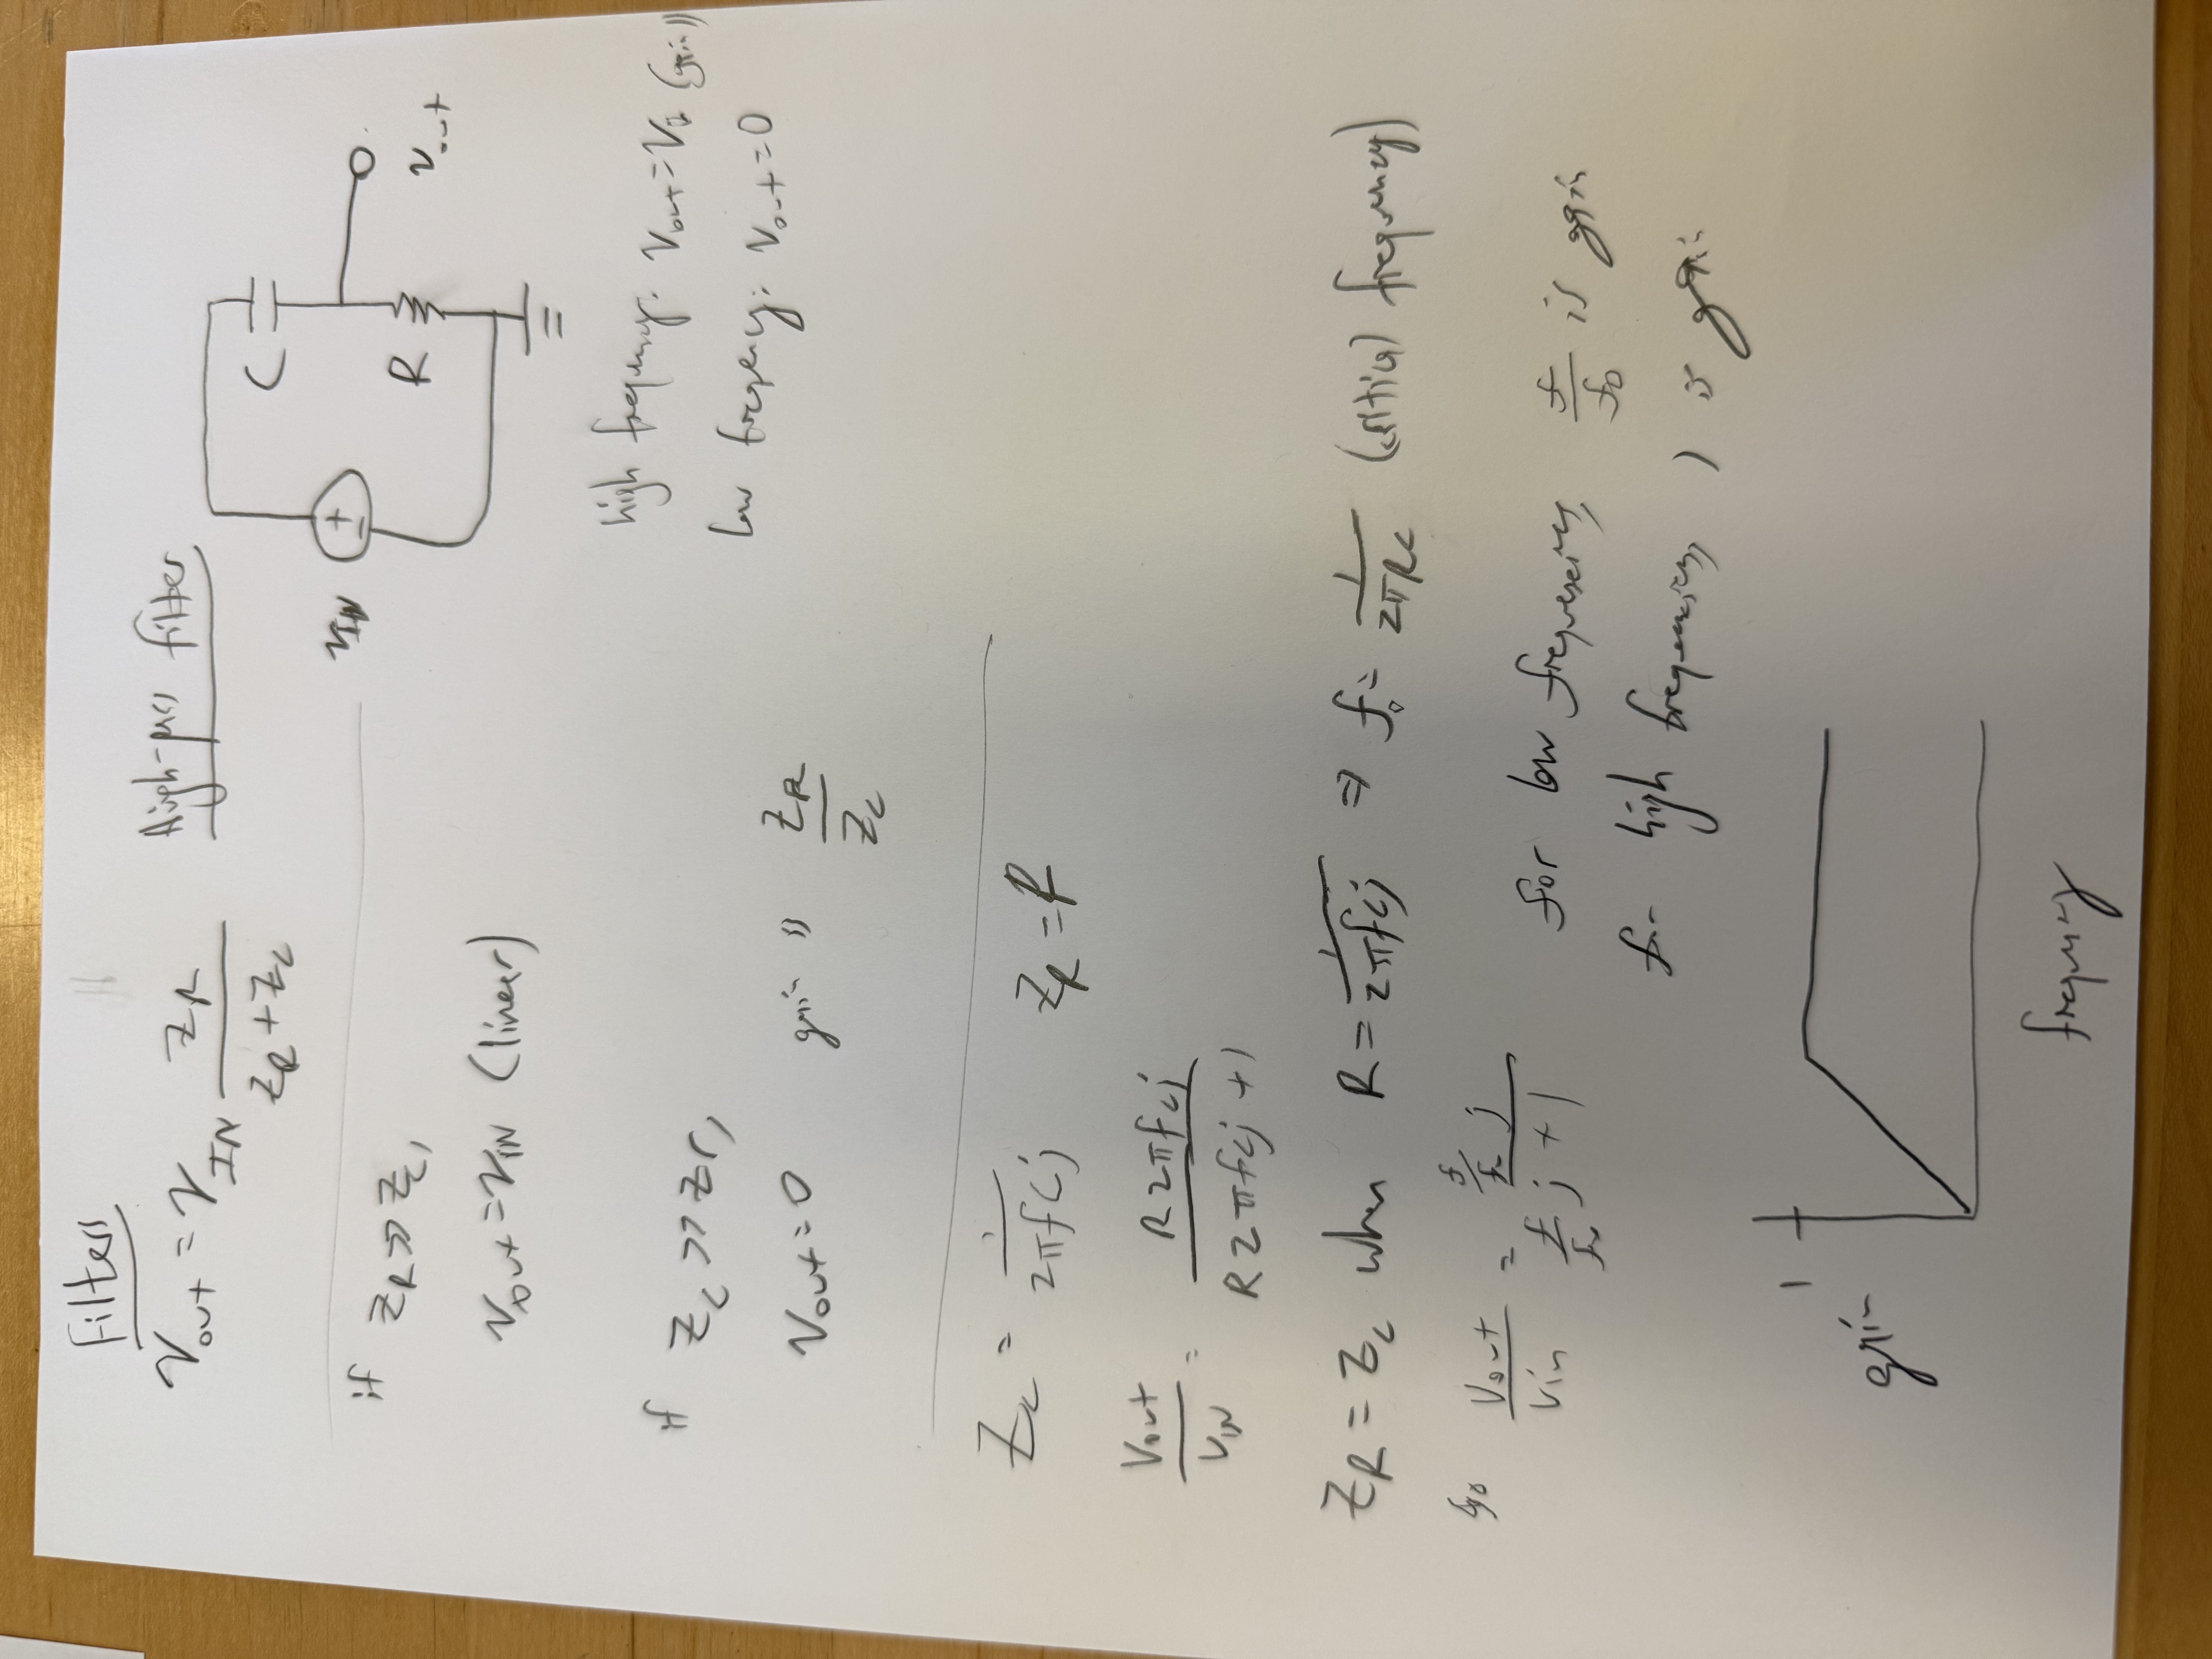 Filters
V_out = V_IN Z_R / (Z_R + Z_C)
High-pass filter
V_IN
C
R
V_out
if Z_R >> Z_C,
V_out = V_IN (linear)
high frequency: V_out = V_in (gain 1)
low frequency: V_out = 0
if Z_C >> Z_r,
V_out = 0
gain = Z_R / Z_C
Z_C = 1 / 2πfCj
Z_R = R
V_out / V_IN = R2πfCj / (R2πfCj + 1)
Z_R = Z_C when R = 1 / 2πfCj ⇒ f_0 = 1 / 2πRC (critical frequency)
so V_out / V_in = (f/f_0 j) / (f/f_0 j + 1)
for low frequencies, f/f_0 is gain
for high frequencies, 1 is gain
1
gain
frequency